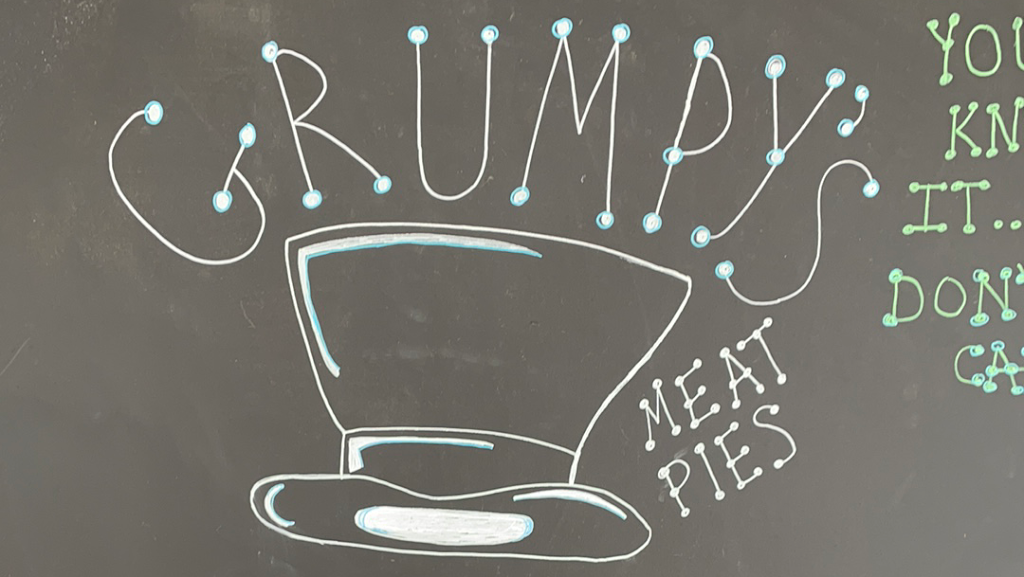 GRUMPY'S
MEAT
PIES
YOU
KN
IT..
DON'
CA